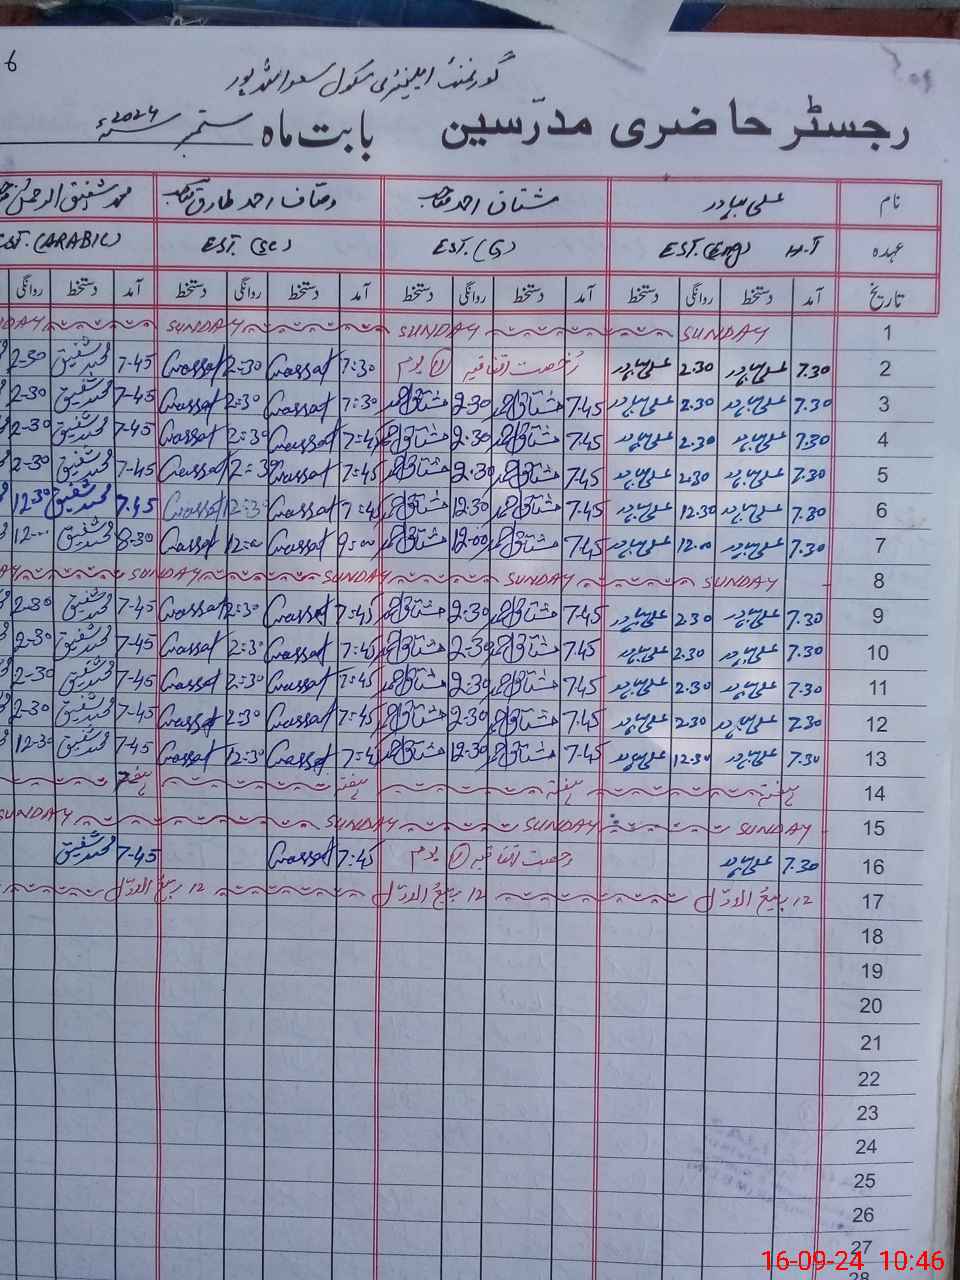 6
گورنمنٹ ایلیمنٹری سکول
رجسٹر حاضری مدرّسین بابت ماہ ستمبر سنہ 2024ء
نام علی بہادر مشتاق احمد احمد طارق محمد شفیق الرحمٰن
عہدہ H.T EST.(Eng) EST.(G) EST.(Sc) EST.(ARABIC)
تاریخ آمد دستخط روانگی دستخط آمد دستخط روانگی دستخط آمد دستخط روانگی دستخط آمد دستخط روانگی
1 SUNDAY SUNDAY SUNDAY
2 7.30 علی بہادر 2.30 علی بہادر رخصت اتفاقیہ ① یوم 7:30 2:30 7-45 محمد شفیق 2-30
3 7.30 علی بہادر 2.30 علی بہادر 7.45 مشتاق احمد 2.30 مشتاق احمد 7:30 2:30 7-45 محمد شفیق 2-30
4 7.30 علی بہادر 2.30 علی بہادر 7.45 مشتاق احمد 2.30 مشتاق احمد 7:45 2:30 7-45 محمد شفیق 2-30
5 7.30 علی بہادر 2.30 علی بہادر 7.45 مشتاق احمد 2.30 مشتاق احمد 7:45 2:30 7-45 محمد شفیق 2-30
6 7.30 علی بہادر 12.30 علی بہادر 7.45 مشتاق احمد 12.30 مشتاق احمد 7:45 12:30 7.45 محمد شفیق 12-30
7 7.30 علی بہادر 12.00 علی بہادر 7.45 مشتاق احمد 12.00 مشتاق احمد 9:00 12:00 8-30 محمد شفیق 12-00
8 SUNDAY SUNDAY SUNDAY SUNDAY
9 7.30 علی بہادر 2.30 علی بہادر 7.45 مشتاق احمد 2.30 مشتاق احمد 7:45 2:30 7-45 محمد شفیق 2-30
10 7.30 علی بہادر 2.30 علی بہادر 7.45 مشتاق احمد 2.30 مشتاق احمد 7:45 2:30 7-45 محمد شفیق 2-30
11 7.30 علی بہادر 2.30 علی بہادر 7.45 مشتاق احمد 2.30 مشتاق احمد 7:45 2:30 7-45 محمد شفیق 2-30
12 7.30 علی بہادر 2.30 علی بہادر 7.45 مشتاق احمد 2.30 مشتاق احمد 7:45 2:30 7-45 محمد شفیق 2-30
13 7.30 علی بہادر 12.30 علی بہادر 7.45 مشتاق احمد 12.30 مشتاق احمد 7:45 12:30 7-45 محمد شفیق 12-30
14 ہفتہ ہفتہ ہفتہ ہفتہ
15 SUNDAY SUNDAY SUNDAY SUNDAY
16 7.30 علی بہادر رخصت اتفاقیہ ① یوم 7:45 7-45 محمد شفیق
17 ۱۲ ربیع الاوّل ۱۲ ربیع الاوّل ۱۲ ربیع الاوّل
18
19
20
21
22
23
24
25
26
27
28
16-09-24 10:46